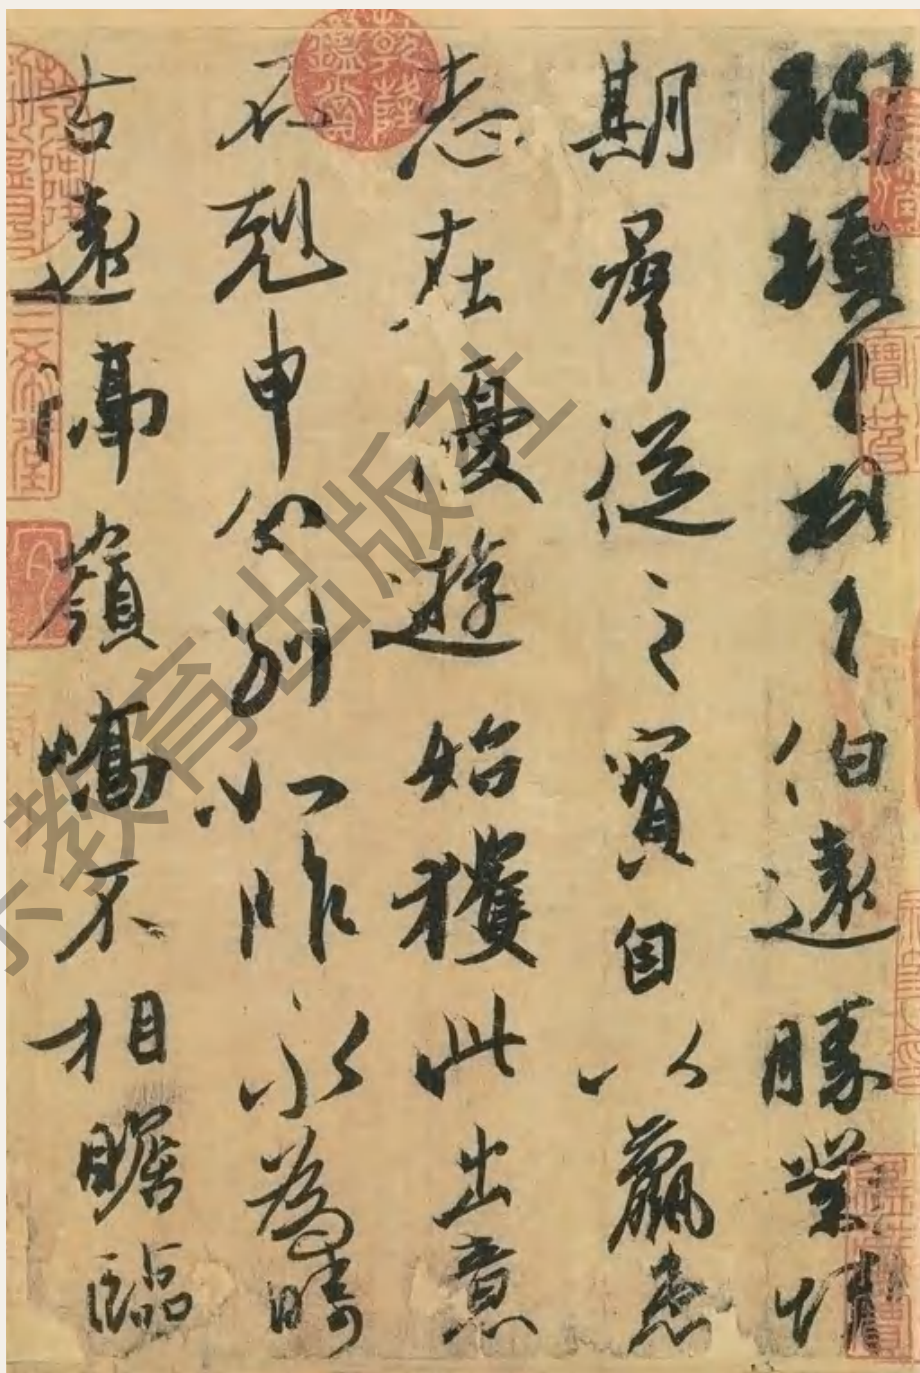 珣頓首頓首伯遠勝業情
期羣從之寶自以羸患
志在優遊始獲此出意
不剋申分別如昨永為疇
古遠隔嶺嶠不相瞻臨
乾隆鑑賞
教育出版社